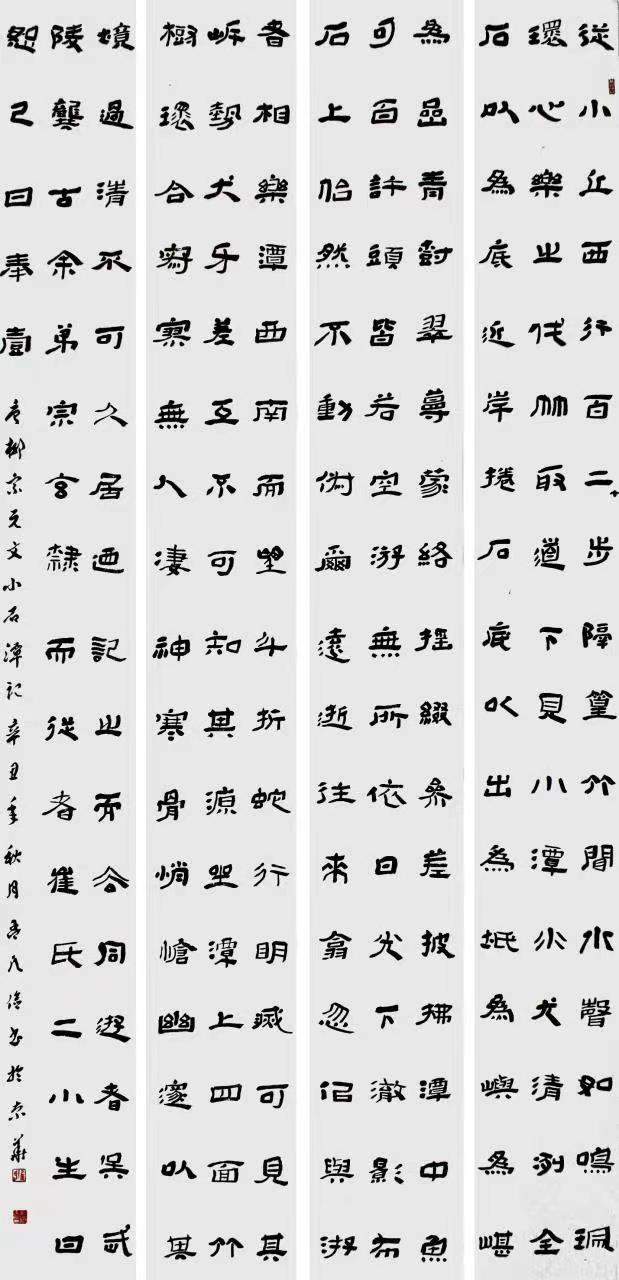 從小丘西行百二十步隔篁竹聞水聲如鳴珮
環心樂之伐竹取道下見小潭水尤清洌全
石以為底近岸捲石底以出為坻為嶼為嵁
為嵒青樹翠蔓蒙絡搖綴參差披拂潭中魚
可百許頭皆若空游無所依日光下澈影布
石上佁然不動俶爾遠逝往來翕忽佀與游
者相樂潭西南而望斗折蛇行明滅可見其
岸勢犬牙差互不可知其源坐潭上四面竹
樹環合寂寥無人凄神寒骨悄愴幽邃以其
境過清不可久居迺記之而去同遊者吳武
陵龔古余弟宗玄隸而從者崔氏二小生曰
恕己曰奉壹
唐柳宗元文小石潭記辛丑年秋月書於京華